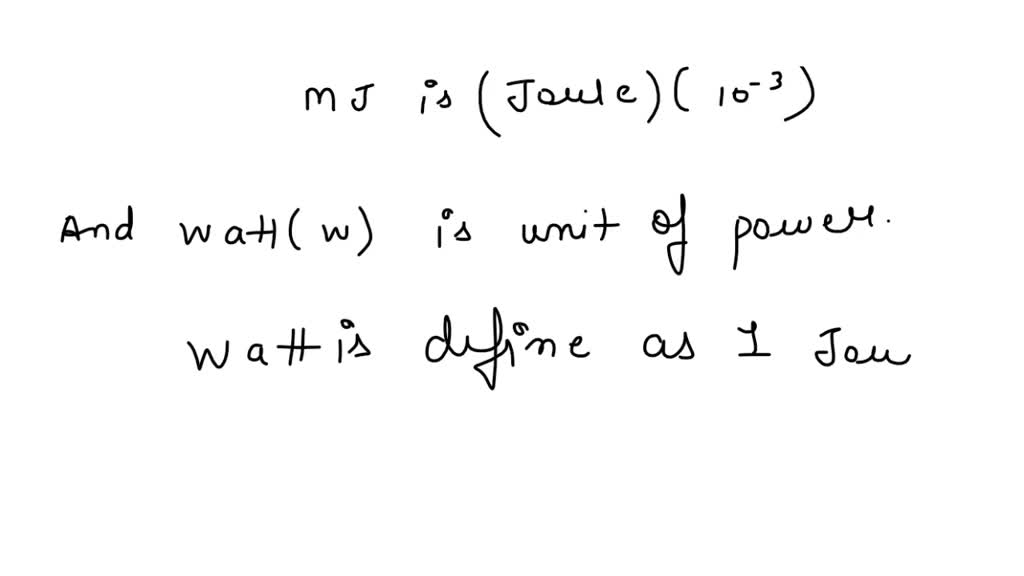 mJ is (Joule) (10⁻³)
And watt (w) is unit of power.
Watt is define as 1 Jou